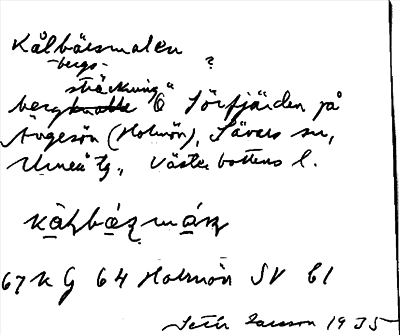 Kålbärsmalen
-bergs- ?
sträckning
berg knabbe Ö Sörfjärden på
Ängesön (Holmön), Sävars sn,
Umeå tg., Västerbottens l.
67 K G 64 Holmön SV b1
Seth Larsson 1935